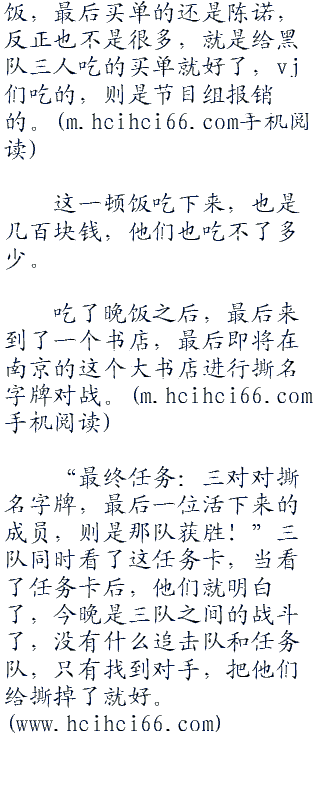 饭，最后买单的还是陈诺，
反正也不是很多，就是给黑
队三人吃的买单就好了，vj
们吃的，则是节目组报销
的。(m.hcihci66.com手机阅
读)
这一顿饭吃下来，也是
几百块钱，他们也吃不了多
少。
吃了晚饭之后，最后来
到了一个书店，最后即将在
南京的这个大书店进行撕名
字牌对战。(m.hcihci66.com
手机阅读)
“最终任务：三对对撕
名字牌，最后一位活下来的
成员，则是那队获胜！”三
队同时看了这任务卡，当看
了任务卡后，他们就明白
了，今晚是三队之间的战斗
了，没有什么追击队和任务
队，只有找到对手，把他们
给撕掉了就好。
(www.hcihci66.com)